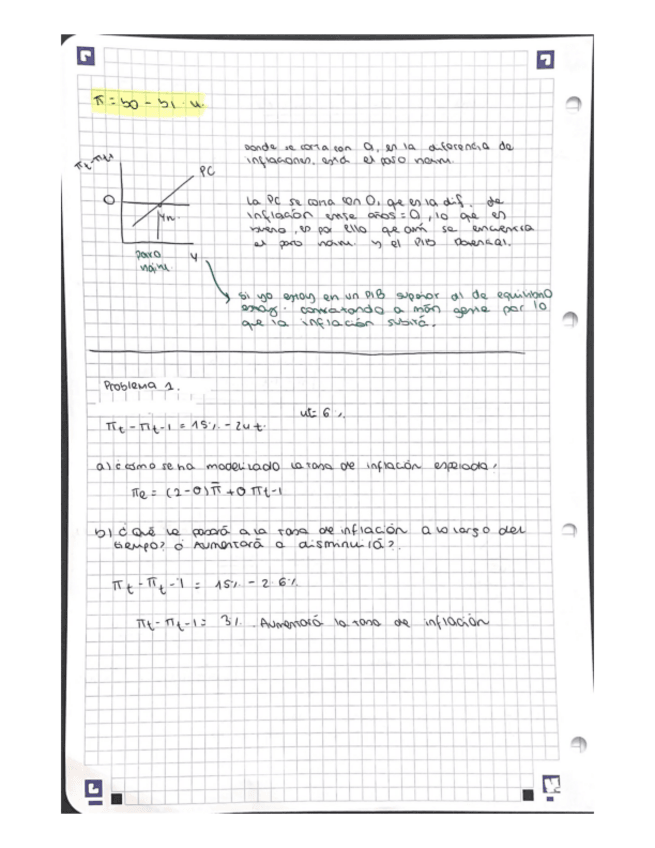 π = b0 - b1 · u.
donde se corta con 0, en la diferencia de
inflaciones, está el paro natural.
πt-πt-1
PC
0
Yn
Y
paro
natural
La PC se corta con 0, que es la dif. de
inflación entre años = 0, lo que es
bueno, es por ello que ahí se encuentra
el paro natural y el PIB potencial.
Si yo estoy en un PIB superior al de equilibrio
estoy contratando a más gente por lo
que la inflación subirá.
Problema 1.
ut = 6%.
πt - πt-1 = 15% - 2ut.
a) ¿cómo se ha modelizado la tasa de inflación esperada?
πe = (2-θ)π̄ + θ πt-1
b) ¿Qué le pasará a la tasa de inflación a lo largo del
tiempo? ¿Aumentará o disminuirá?
πt - πt-1 = 15% - 2·6%
πt - πt-1 = 3%. Aumentará la tasa de inflación